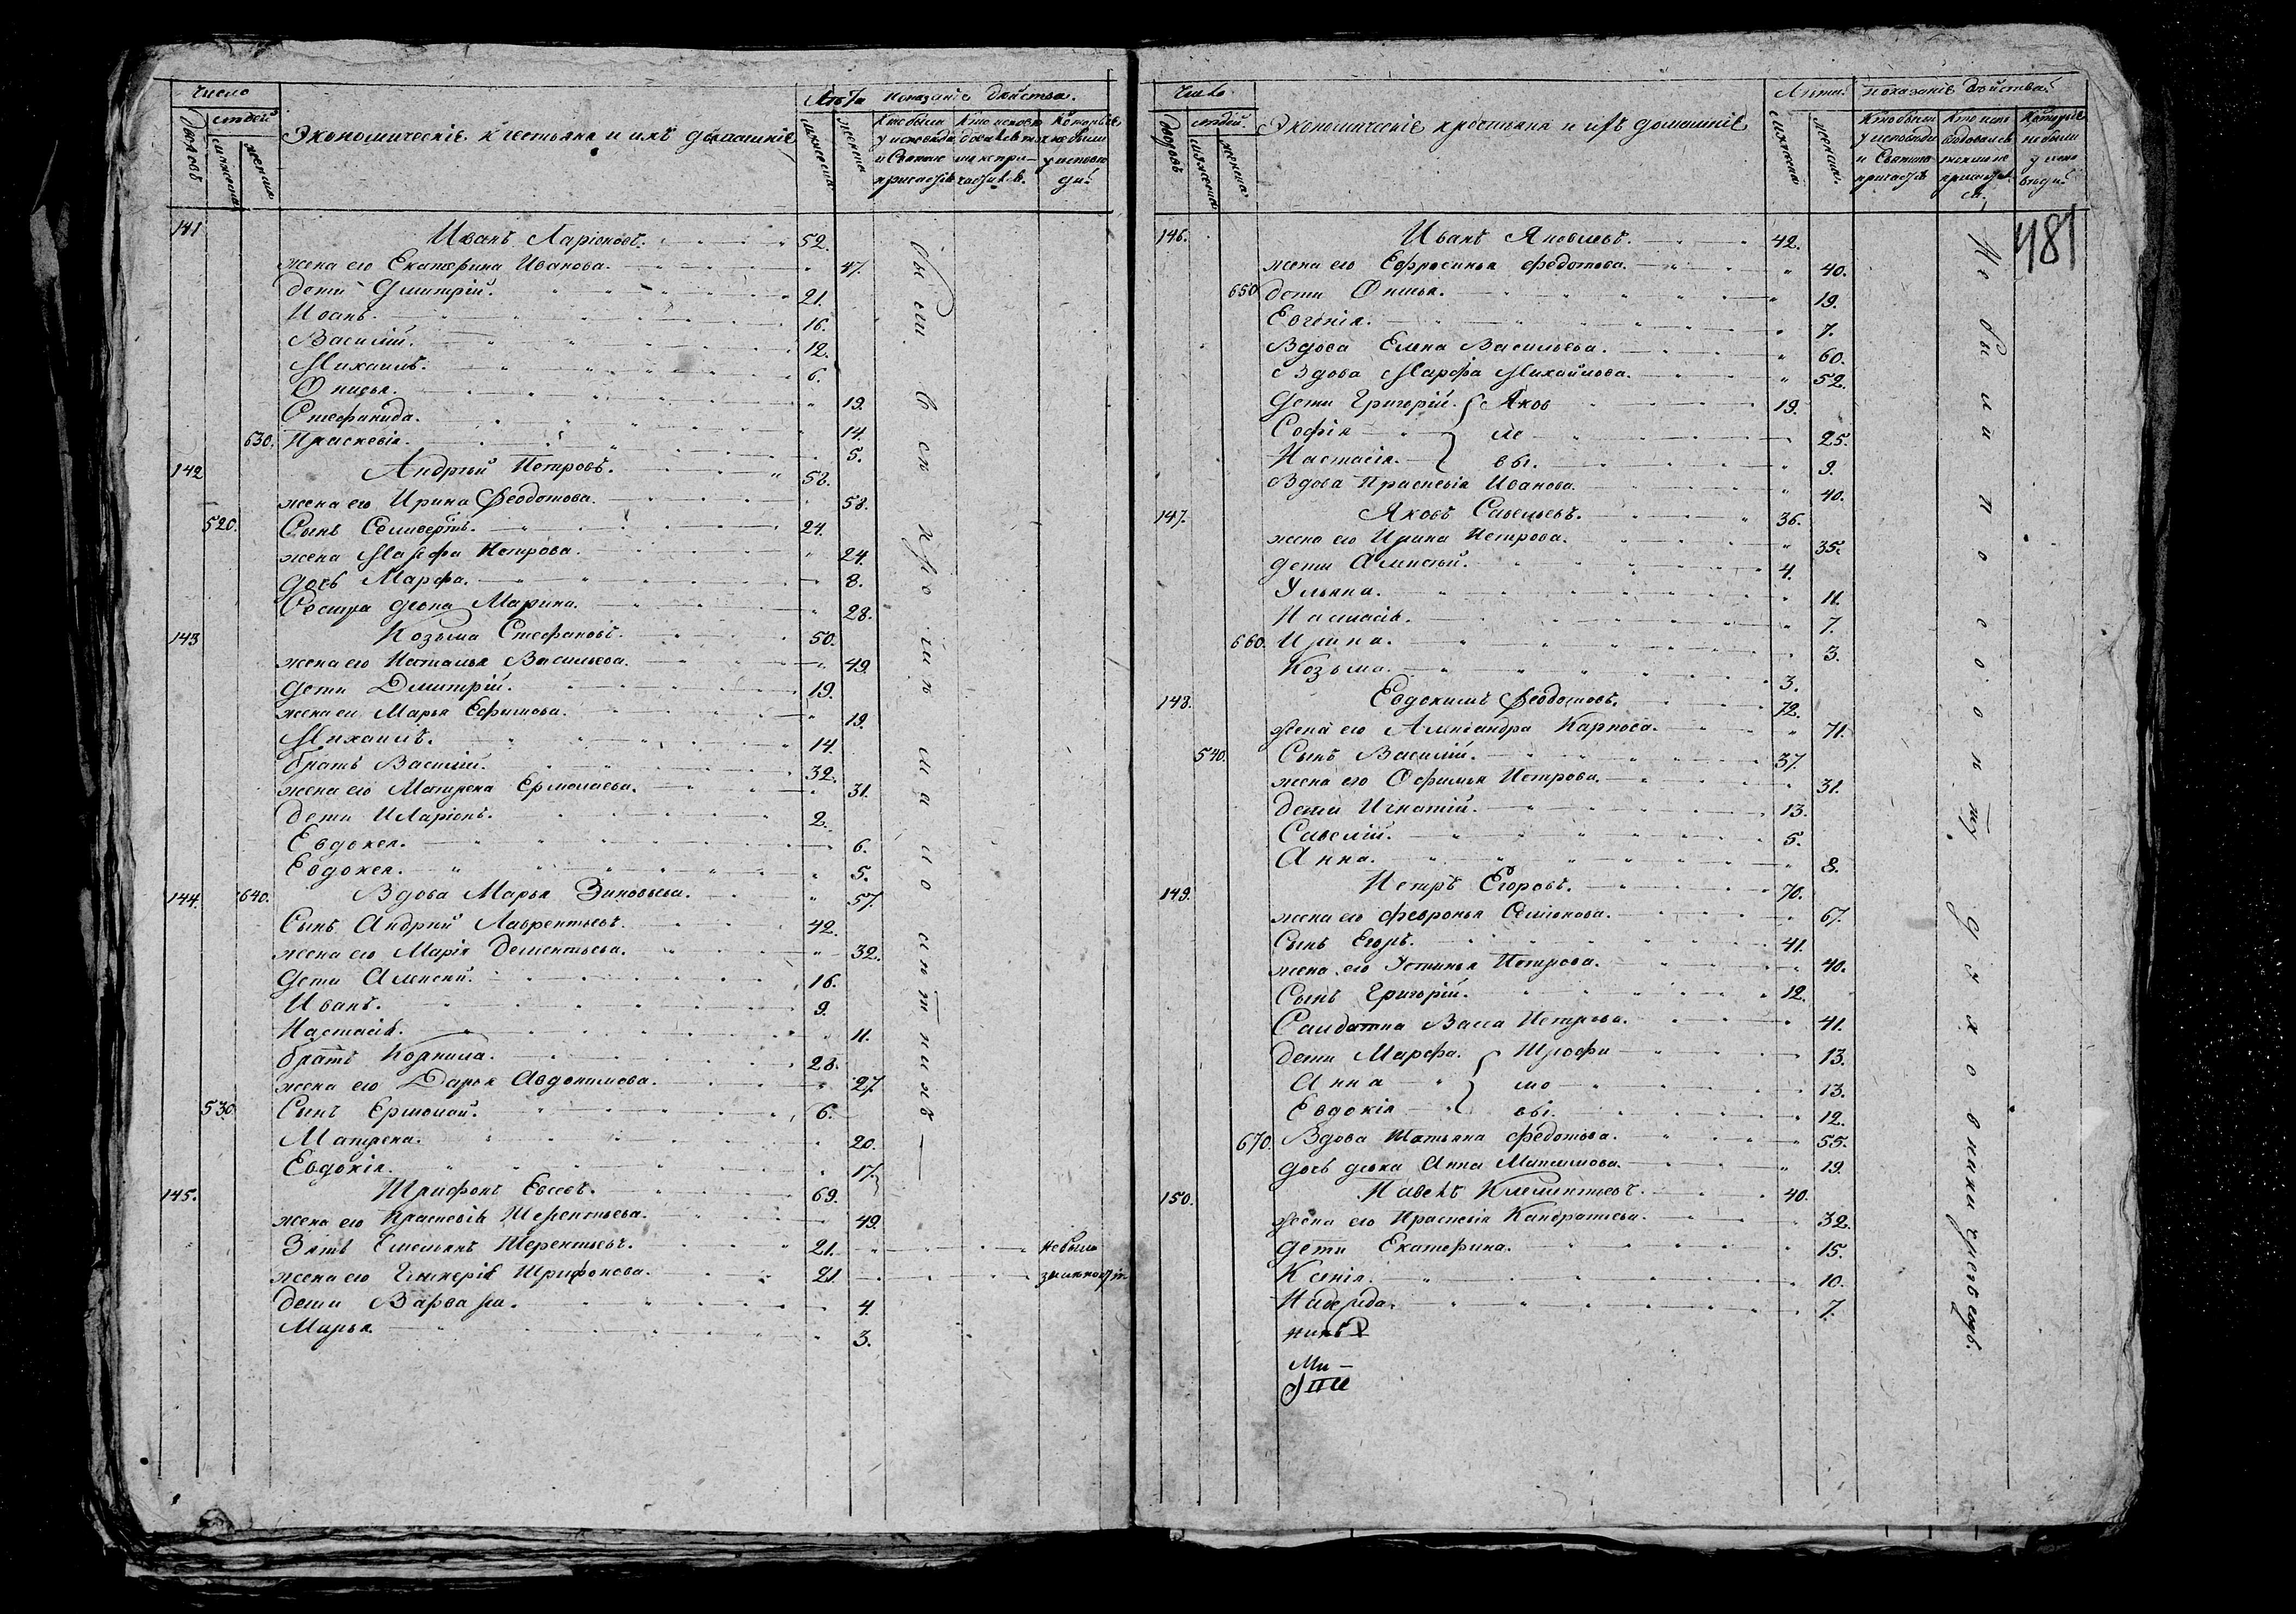 Число
людей
дворовъ
мужеска
женска
Экономическіе крестьяне и ихъ домашніе
Лѣта
мужеска
женска
Показаніе бытства.
Кто были у исповеди и Святаго причастія
Которые не были у исповеди
141
Иванъ Ларіоновъ. 52.
жена его Екатерина Иванова. 47.
дети Дмитрій. 21.
Иванъ. 16.
Василій. 12.
Михаилъ. 6.
Онисья. 19.
Стефанида. 14.
630. Праскевія. 5.
142 Андрей Петровъ. 58.
жена его Ирина Феодотова. 58.
520. Сынъ Селиверстъ. 24.
жена Марфа Петрова. 24.
дочь Марфа. 8.
Сестра девка Марина. 28.
143 Козьма Стефановъ. 50.
жена его Наталья Васильева. 49.
дети Дмитрій. 19.
жена ег Марья Ефимова. 19.
Михаилъ. 14.
братъ Василій. 32.
жена его Матрена Ермолаева. 31.
дети Иларіонъ. 2.
Евдокея. 6.
Евдокея. 5.
144. 640. Вдова Марья Зиновьева. 57.
Сынъ Андрей Лаврентьевъ. 42.
жена его Марія Дементьева. 32.
дети Алексей. 16.
Иванъ. 9.
Настасія. 11.
братъ Корнила. 28.
жена его Дарья Авдокимова. 27.
530. Сынъ Ермолай. 6.
Матрена. 20.
Евдокія. 17.
145. Трифонъ Евсеевъ. 69.
жена его Праскевія Терентьева. 49.
Зять Емельянъ Терентьевъ. 21. не были
жена его Гликерія Трифонова. 21
дети Варвара. 4.
Марья. 3.
Число
людей
дворовъ
мужеска
женска
Экономическіе крестьяне и ихъ домашніе
Лѣта
мужеска
женска
Показаніе бытства.
Кто были у исповеди и Святаго причастія
Которые не были у исповеди
481
146. Иванъ Яковлевъ. 42.
жена его Ефросинья Федотова. 40.
650 дети Онисья. 19.
Евгенія. 7.
Вдова Елена Васильева. 60.
Вдова Марфа Михайлова. 52.
дети Григорій. Яков 19.
Софія ле 25.
Настасія. вы. 9.
Вдова Праскевія Иванова. 40.
147. Яковъ Савельевъ. 36.
жена его Ирина Петрова. 35.
дети Алексей. 4.
Ульяна. 11.
Настасія. 7.
660. Ирина. 3.
Козьма. 3.
148. Евдокимъ Феодотовъ. 72.
жена его Александра Карпова. 71.
540. Сынъ Василій. 37.
жена его Офимья Петрова. 31.
дети Игнатій. 13.
Савелій. 5.
Анна. 8.
149. Петръ Егоровъ. 70.
жена его Февронья Семионова. 67.
Сынъ Егоръ. 41.
жена его Устинья Петрова. 40.
Сынъ Григорій. 12.
Салдатка Васса Петрова. 41.
дети Марфа. Трофи 13.
Анна мо 13.
Евдокія вы. 12.
670. Вдова Татьяна Федотова. 55.
дочь девка Анна Максимова. 19.
150. Павелъ Клементьевъ. 40.
жена его Праскевія Кандратьева. 32.
дети Екатерина. 15.
Ксенія. 10.
Надежда. 7.